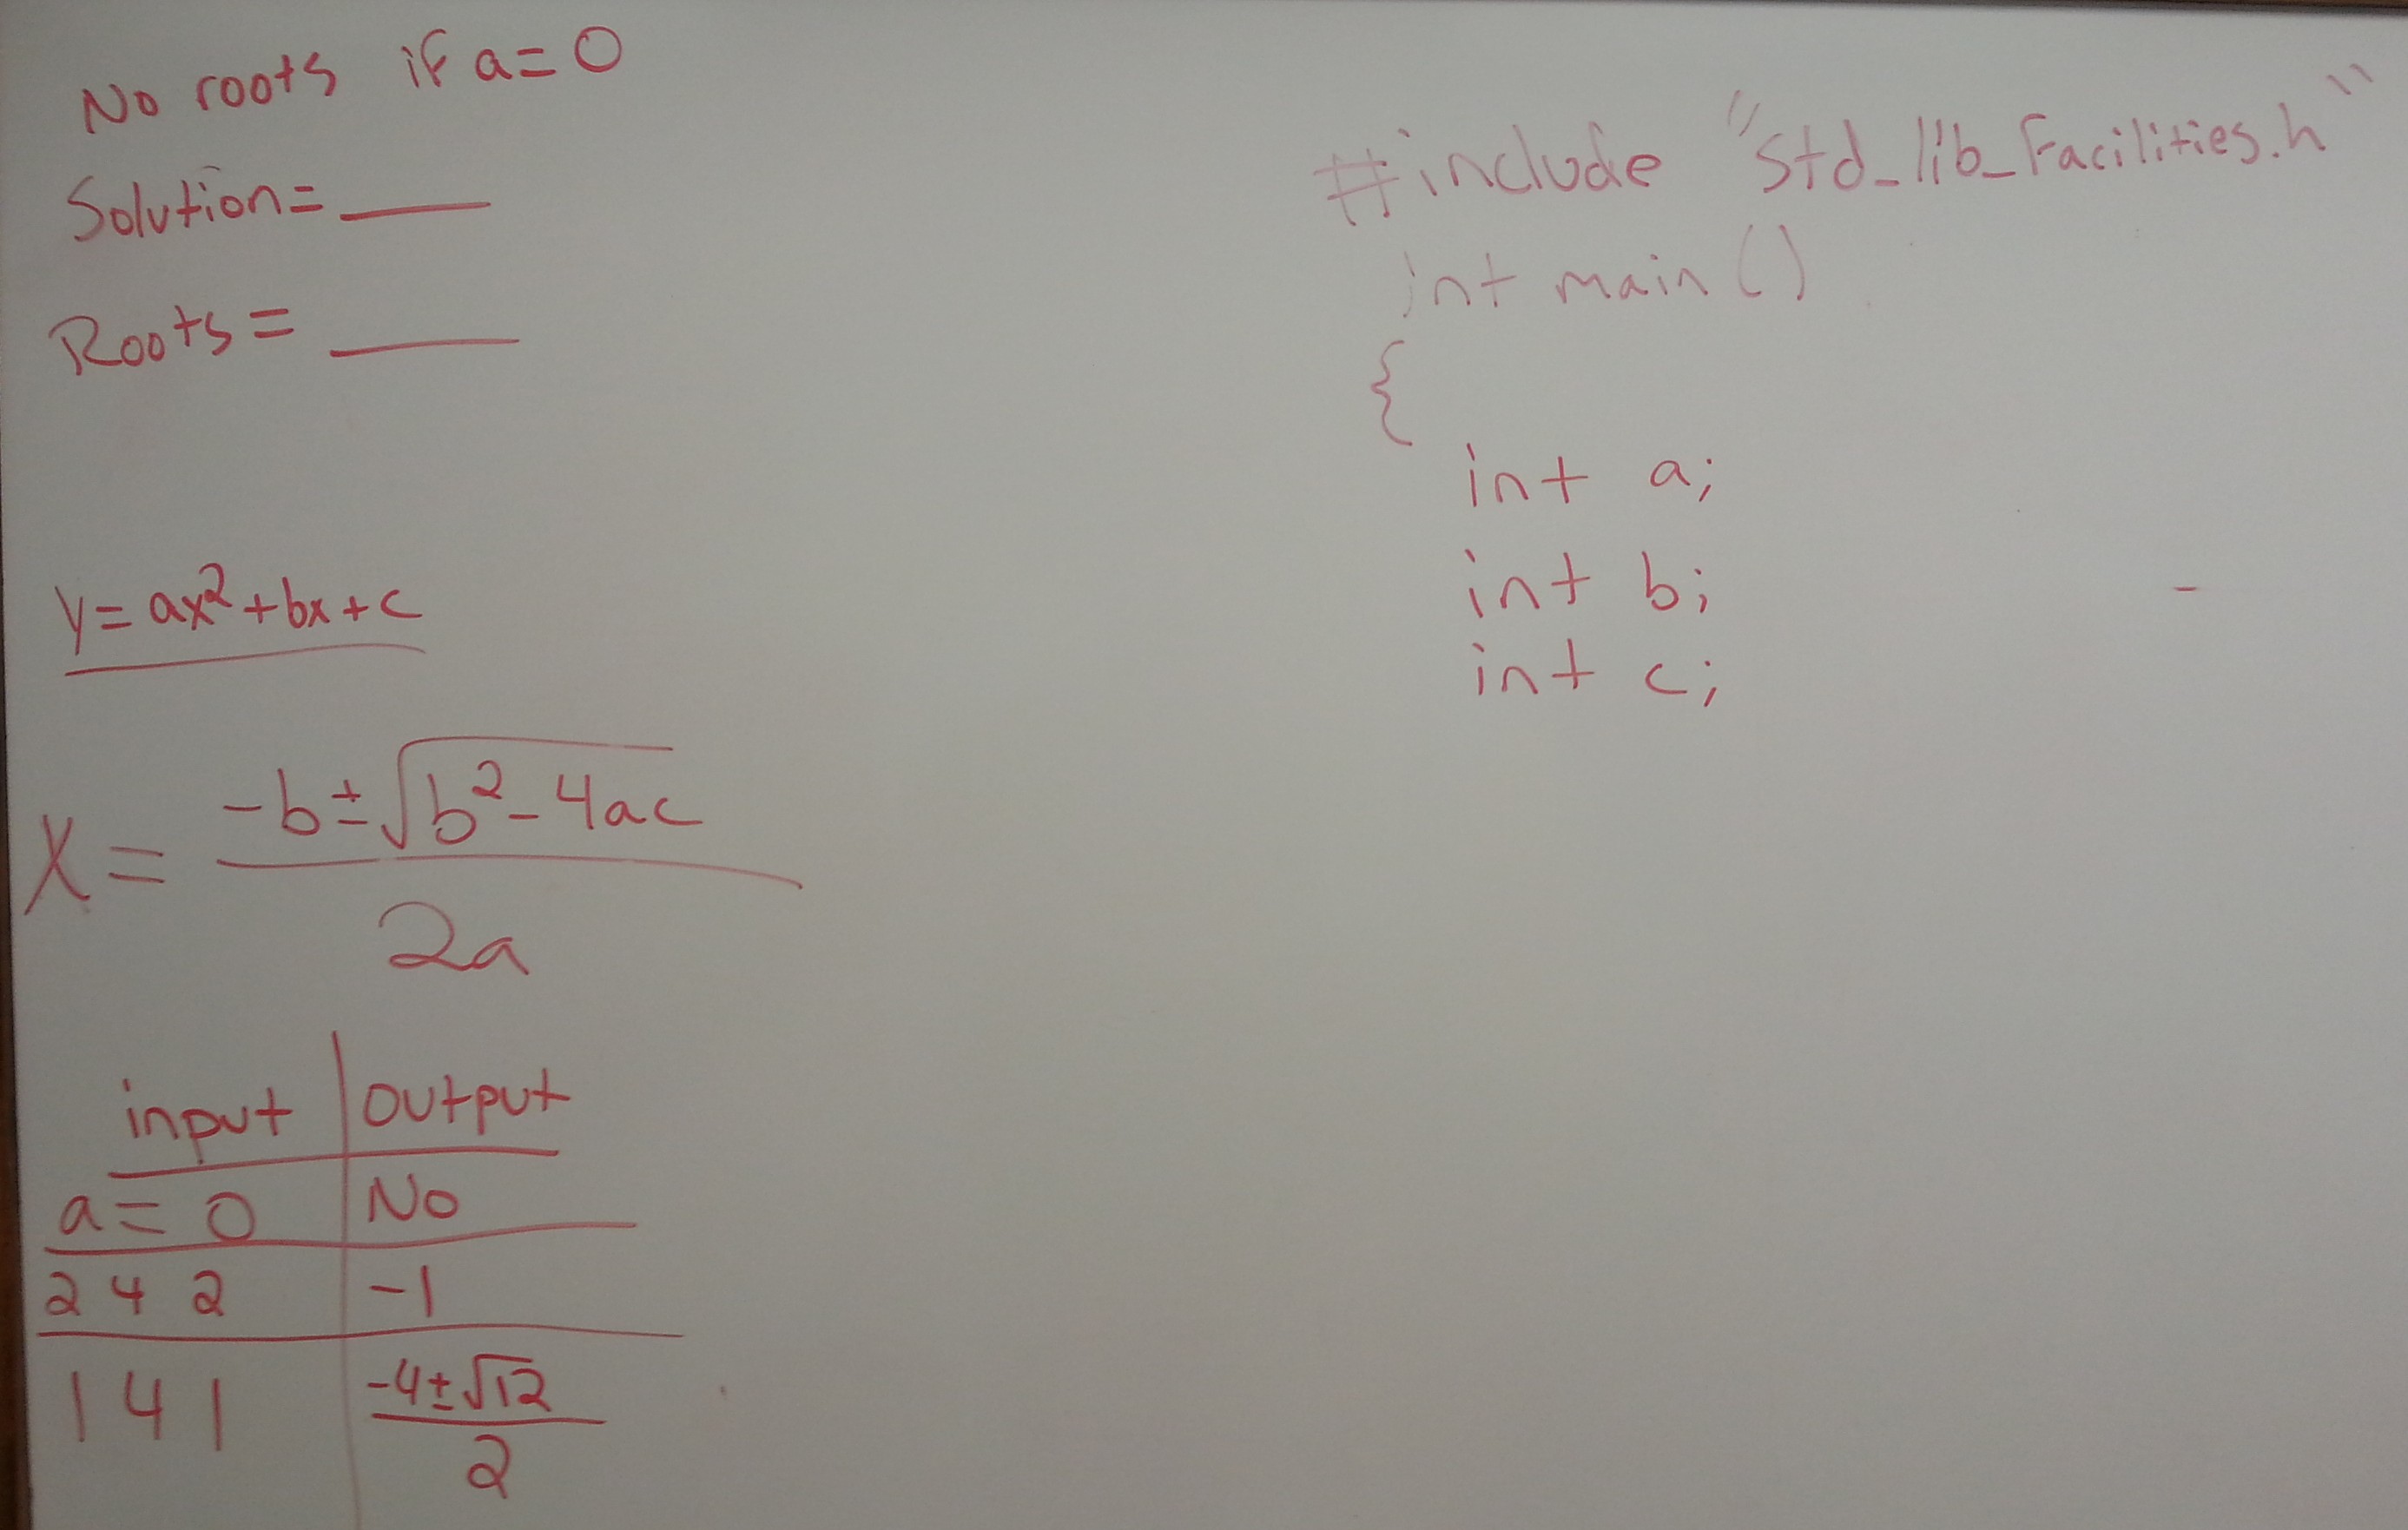 No roots if a=0
Solution=___
Roots=___
y=ax²+bx+c
X= (-b±√(b²-4ac))/(2a)
input | output
a=0 | No
2 4 2 | -1
1 4 1 | (-4±√12)/2
#include "std_lib_Facilities.h"
int main()
{
int a;
int b;
int c;